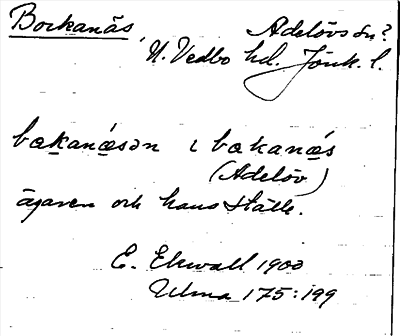 Bockanäs, Adelövs sn?
N. Vedbo hd. Jönk. l.
bɑkanǽsən ɩ bɑkanǽs
(Adelöv)
ägaren och hans ställe.
E. Ekwall 1900
Ulma 175:199